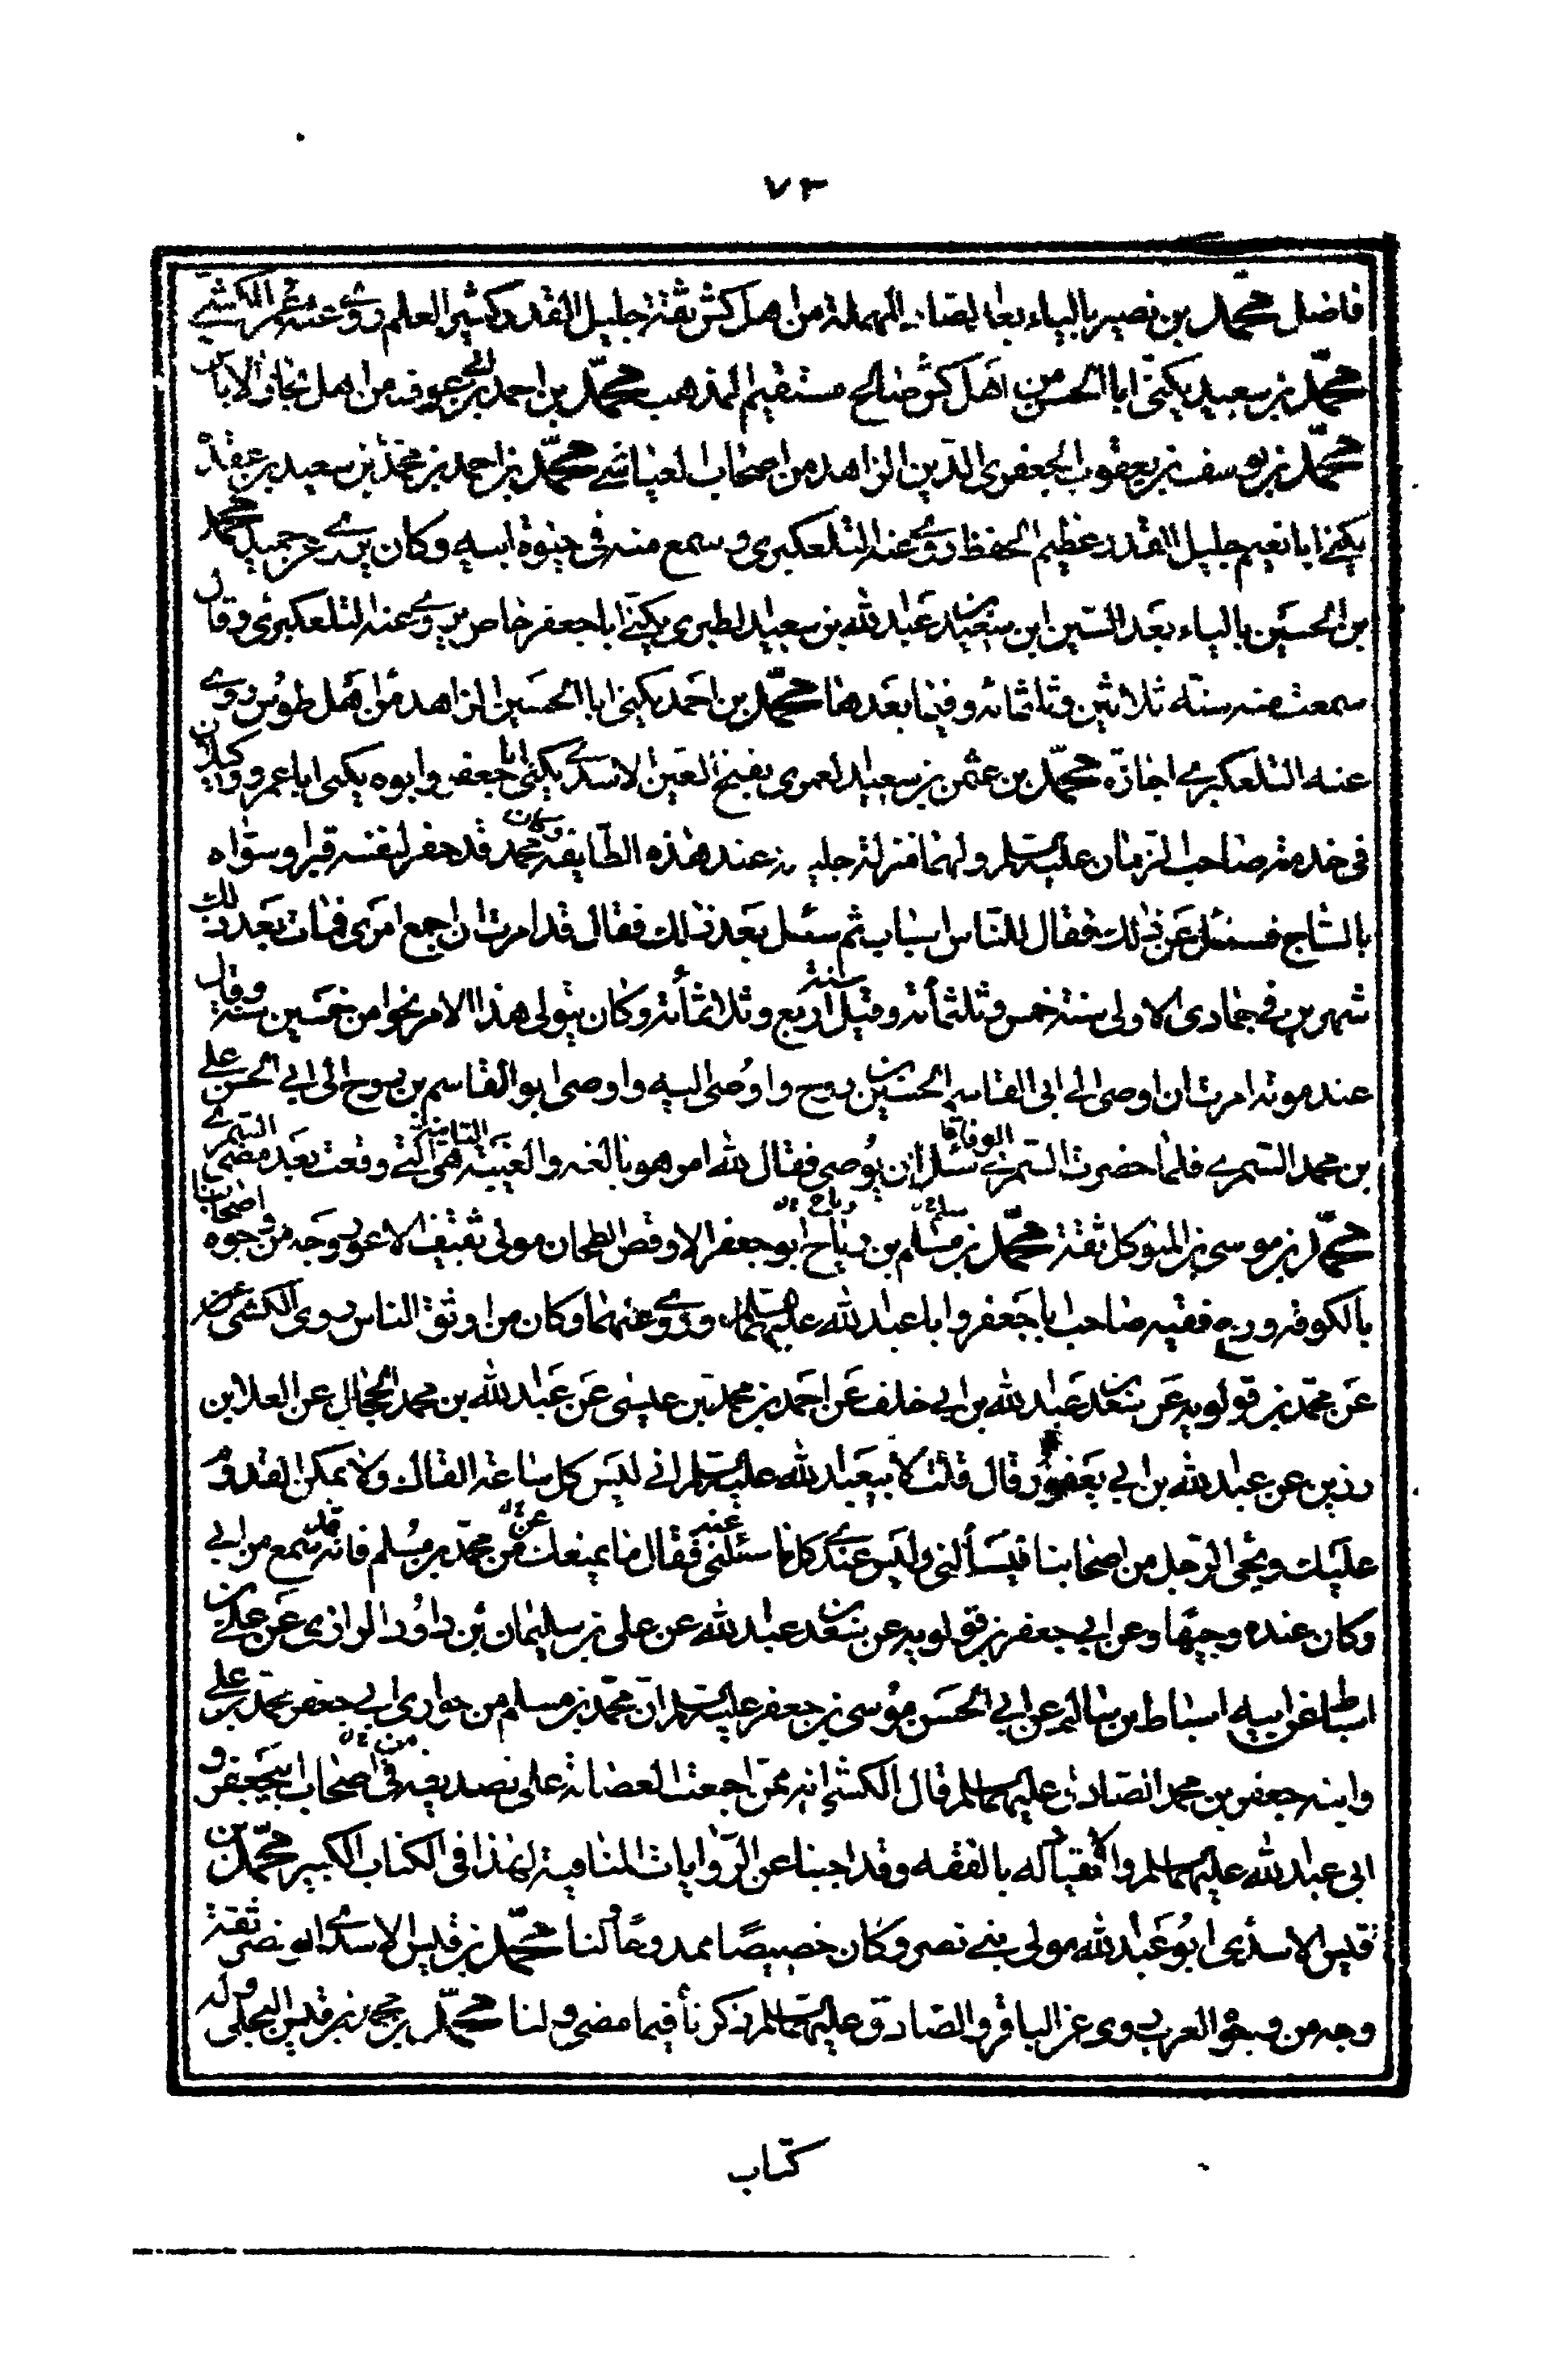 ٧٣
فاضل محمد بن نصير بالياء بعد الصاد المهملة من اهل كش ثقة جليل القدر كثير العلم روى عنه ابو عمر الكشي
محمد بن سعيد يكنى ابا الحسن من اهل كش صالح مستقيم المذهب محمد بن احمد بن ابي عوف من اهل بخارا لا باس
محمد بن يوسف بن يعقوب الجعفرى الدين الزاهد من اصحاب العياشي محمد بن احمد بن محمد بن سعيد بن عقدة
يكنى ابا نعيم جليل القدر عظيم الحفظ روى عنه التلعكبرى وسمع منه فى حيوة ابيه وكان يروى عن حميد محمد
بن الحسين بالياء بعد السين ابن سعيد بن عبد الله بن سعيد الطبرى يكنى ابا جعفر خاص يروى عنه التلعكبرى وقال
سمعت منه سنة ثلاثين وثلثمائة وفيما بعدها محمد بن احمد يكنى ابا الحسين الزاهد من اهل طوس روى
عنه التلعكبرى اجازة محمد بن عثمن بن سعيد العمرى بفتح العين الاسدى يكنى ابا جعفر وابوه يكنى ابا عمرو وكيلان
فى خدمة صاحب الزمان عليه السلم ولهما منزلة جليلة عند هذه الطايفة وكان محمد قد حفر لنفسه قبرا وسواه
بالساج فسئل عن ذلك فقال للناس اسباب ثم سئل بعد ذلك فقال قد امرت ان اجمع امرى فمات بعد ذلك
شهرين فى جمادى الاولى سنة خمس وثلثمأئة وقيل سنة اربع وثلاثمأئة وكان يتولى هذا الامر نحوا من خمسين سنة وقال
عند موته امرت ان اوصى الى ابى القاسم الحسين بن روح واوصى اليه واوصى ابو القاسم بن روح الى ابى الحسن على
بن محمد السمرى فلما حضرت السمرى الوفاة سئل ان يوصى فقال لله امر هو بالغه والغيبة التامة هى التى وقعت بعد مضى السمرى
محمد بن موسى بن المتوكل ثقة محمد بن مسلم بن رباح ابو جعفر الاوقص الطحان مولى ثقيف الاعور وجه من وجوه اصحابنا
بالكوفة ورع فقيه صاحب ابا جعفر وابا عبد الله عليهما السلم وروى عنهما وكان من اوثق الناس روى الكشى
عن محمد بن قولويه عن سعد بن عبد الله بن ابى خلف عن احمد بن محمد بن عيسى عن عبد الله بن محمد الحجال عن العلا بن
رزين عن عبد الله بن ابى يعفور قال قلت لابيعبد الله عليه السلم انى ليس كل ساعة القاك ولا يمكن القدوم
عليك ويجى الرجل من اصحابنا فيسألنى وليس عندى كل ما سئلنى عنه فقال ما يمنعك من محمد بن مسلم فانه قد سمع من ابى
وكان عنده وجيها وعن ابى جعفر بن قولويه عن سعد بن عبد الله عن على بن سليمان بن داود الرازى عن على بن
اسباط عن ابيه اسباط بن سالم عن ابى الحسن موسى بن جعفر عليه السلم ان محمد بن مسلم من حوارى ابى جعفر محمد بن على
وابنه جعفر بن محمد الصادق عليهما السلم قال الكشى انه ممن اجمعت العصابة على تصديقه من اصحاب ابيجعفر و
ابى عبد الله عليهما السلم والانقياد له بالفقه وقد اجبنا عن الروايات المنافية لهذا فى الكتاب الكبير محمد بن
قيس الاسدى ابو عبد الله مولى بنى نصر وكان خصيصا ممدوحا لنا محمد بن قيس الاسدى ابو نصر ثقة
وجه من وجوه العرب روى عن الباقر والصادق عليهما السلم ذكرناه فيما مضى ولنا محمد بن قيس البجلى وله
كتاب